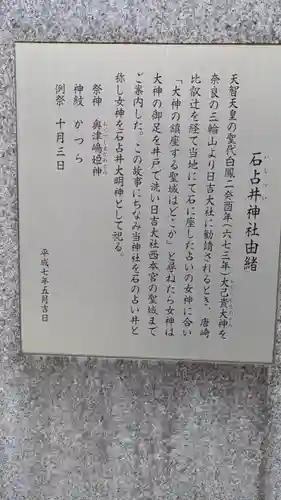 石占井神社由緒
天智天皇の聖代白鳳二癸酉年(六七三年)大己貴大神を
奈良の三輪山より日吉大社に勧請されるとき、唐崎
比叡辻を経て当地にて石に座した占いの女神に合い
「大神の鎮座する聖域はどこか」と尋ねたら女神は
大神の御足を井戸で洗い日吉大社西本宮の聖域まで
ご案内した。この故事にちなみ当神社を石の占い井と
称し女神を石占井大明神として祀る。
祭神 奥津嶋姫神
神紋 かつら
例祭 十月三日
平成七年五月吉日